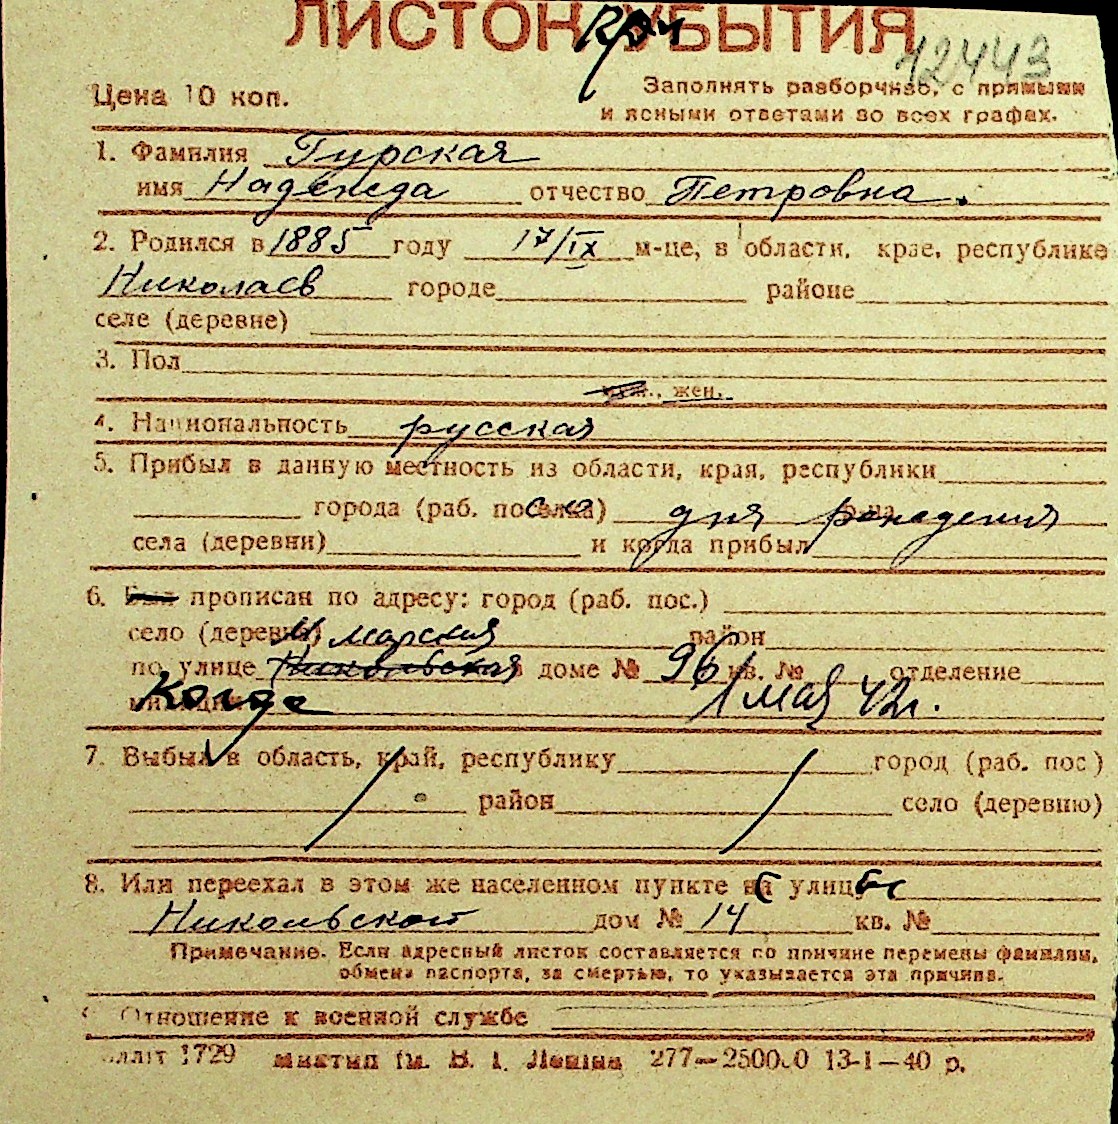 ЛИСТОК УБЫТИЯ
12443
Цена 10 коп.
Заполнять разборчиво, с прямыми
и ясными ответами во всех графах.
1. Фамилия Гурская
имя Надежда отчество Петровна.
2. Родился в 1885 году 17/IX м-це, в области, крае, республике
Николаев городе районе
селе (деревне)
3. Пол
муж., жен.
4. Национальность русская
5. Прибыл в данную местность из области, края, республики
города (раб. поселка) со дня рождения
села (деревни) и когда прибыл
6. Был прописан по адресу: город (раб. пос.)
село (деревня) район
по улице Никольская доме № 96 кв. № отделение
милиции когда 1 мая 42 г.
7. Выбыл в область, край, республику город (раб. пос.)
район село (деревню)
8. Или переехал в этом же населенном пункте на улицу
Никольской дом № 14 кв. №
Примечание. Если адресный листок составляется по причине перемены фамилии,
обмена паспорта, за смертью, то указывается эта причина.
Отношение к военной службе
1729 им. В. І. Леніна 277—250000 13-1—40 р.